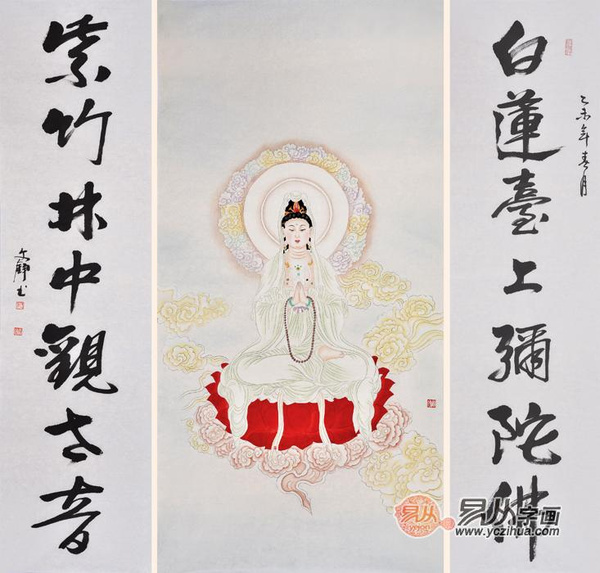 白蓮臺上彌陀佛
乙未年春月
紫竹林中觀世音
易从
易从字画
www.yczihua.com